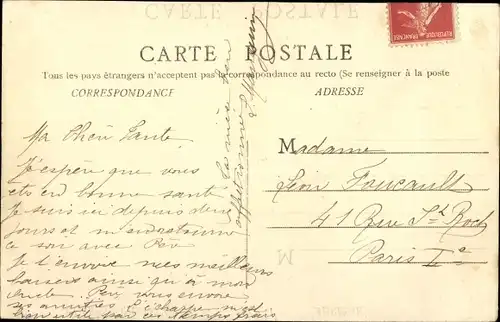 CARTE POSTALE
REPUBLIQUE FRANÇAISE
CARTE POSTALE
Tous les pays étrangers n'acceptent pas la correspondance au recto (Se renseigner à la poste
CORRESPONDANCE
ADRESSE
Ma Chère Tante
J'espère que vous
en bonne santé
Je suis ici depuis deux
jours et m'en retourne
ce soir avec
Je t'envoie mes meilleurs
baisers ainsi qu'à mon
oncle. vous envoie
ses amitiés
ce temps frais
Ta nièce
affectionnée
Madame
Léon Foucault
41 Rue St Roch
Paris 1e